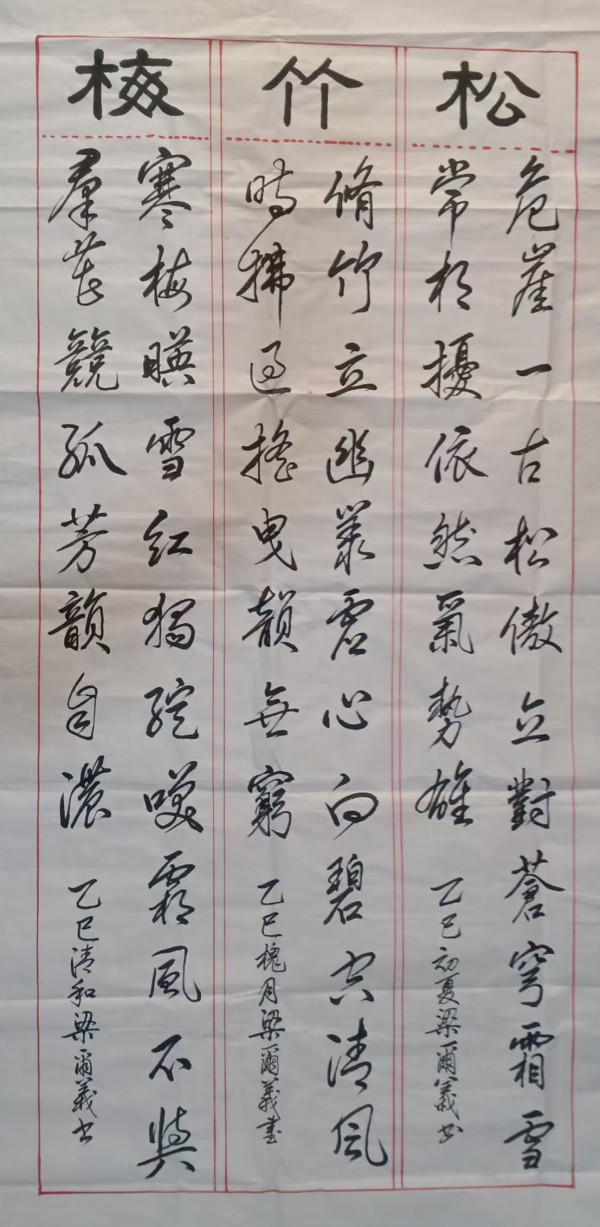 松
危崖一古松傲立對蒼穹霜雪
常相擾依然氣勢雄
乙巳初夏梁爾義書
竹
脩竹立幽叢虛心向碧空清風
時拂過搖曳韻無窮
乙巳槐月梁爾義書
梅
寒梅暎雪紅獨綻嘆霜風不與
羣芲競孤芳韻自濃
乙巳清和梁爾義書